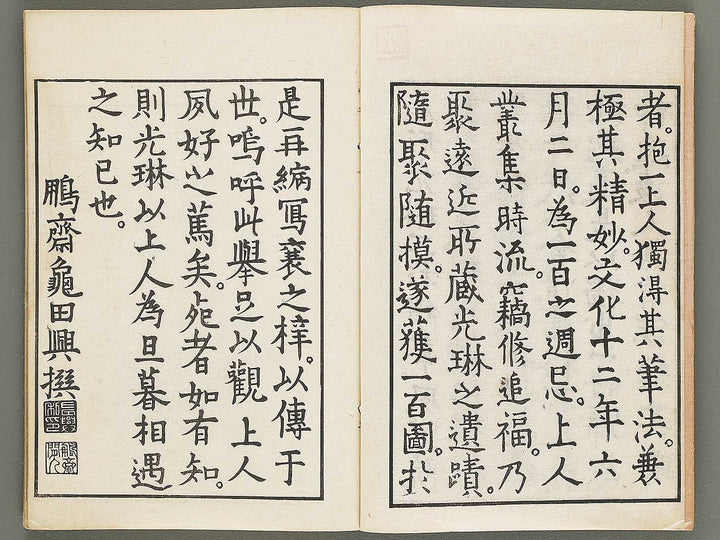 者。抱一上人獨得其筆法。兼
極其精妙。文化十二年六
月二日。為一百之週忌。上人
叢集時流。竊修追福。乃
聚遠近所蔵光琳之遺蹟。
隨聚随摸。遂獲一百圖。於
是再縮冩襄之梓。以傳于
世。嗚呼此擧足以觀上人
夙好之篤矣。死者如有知。
則光琳以上人為旦暮相遇
之知已也。
鵬齋龜田興撰